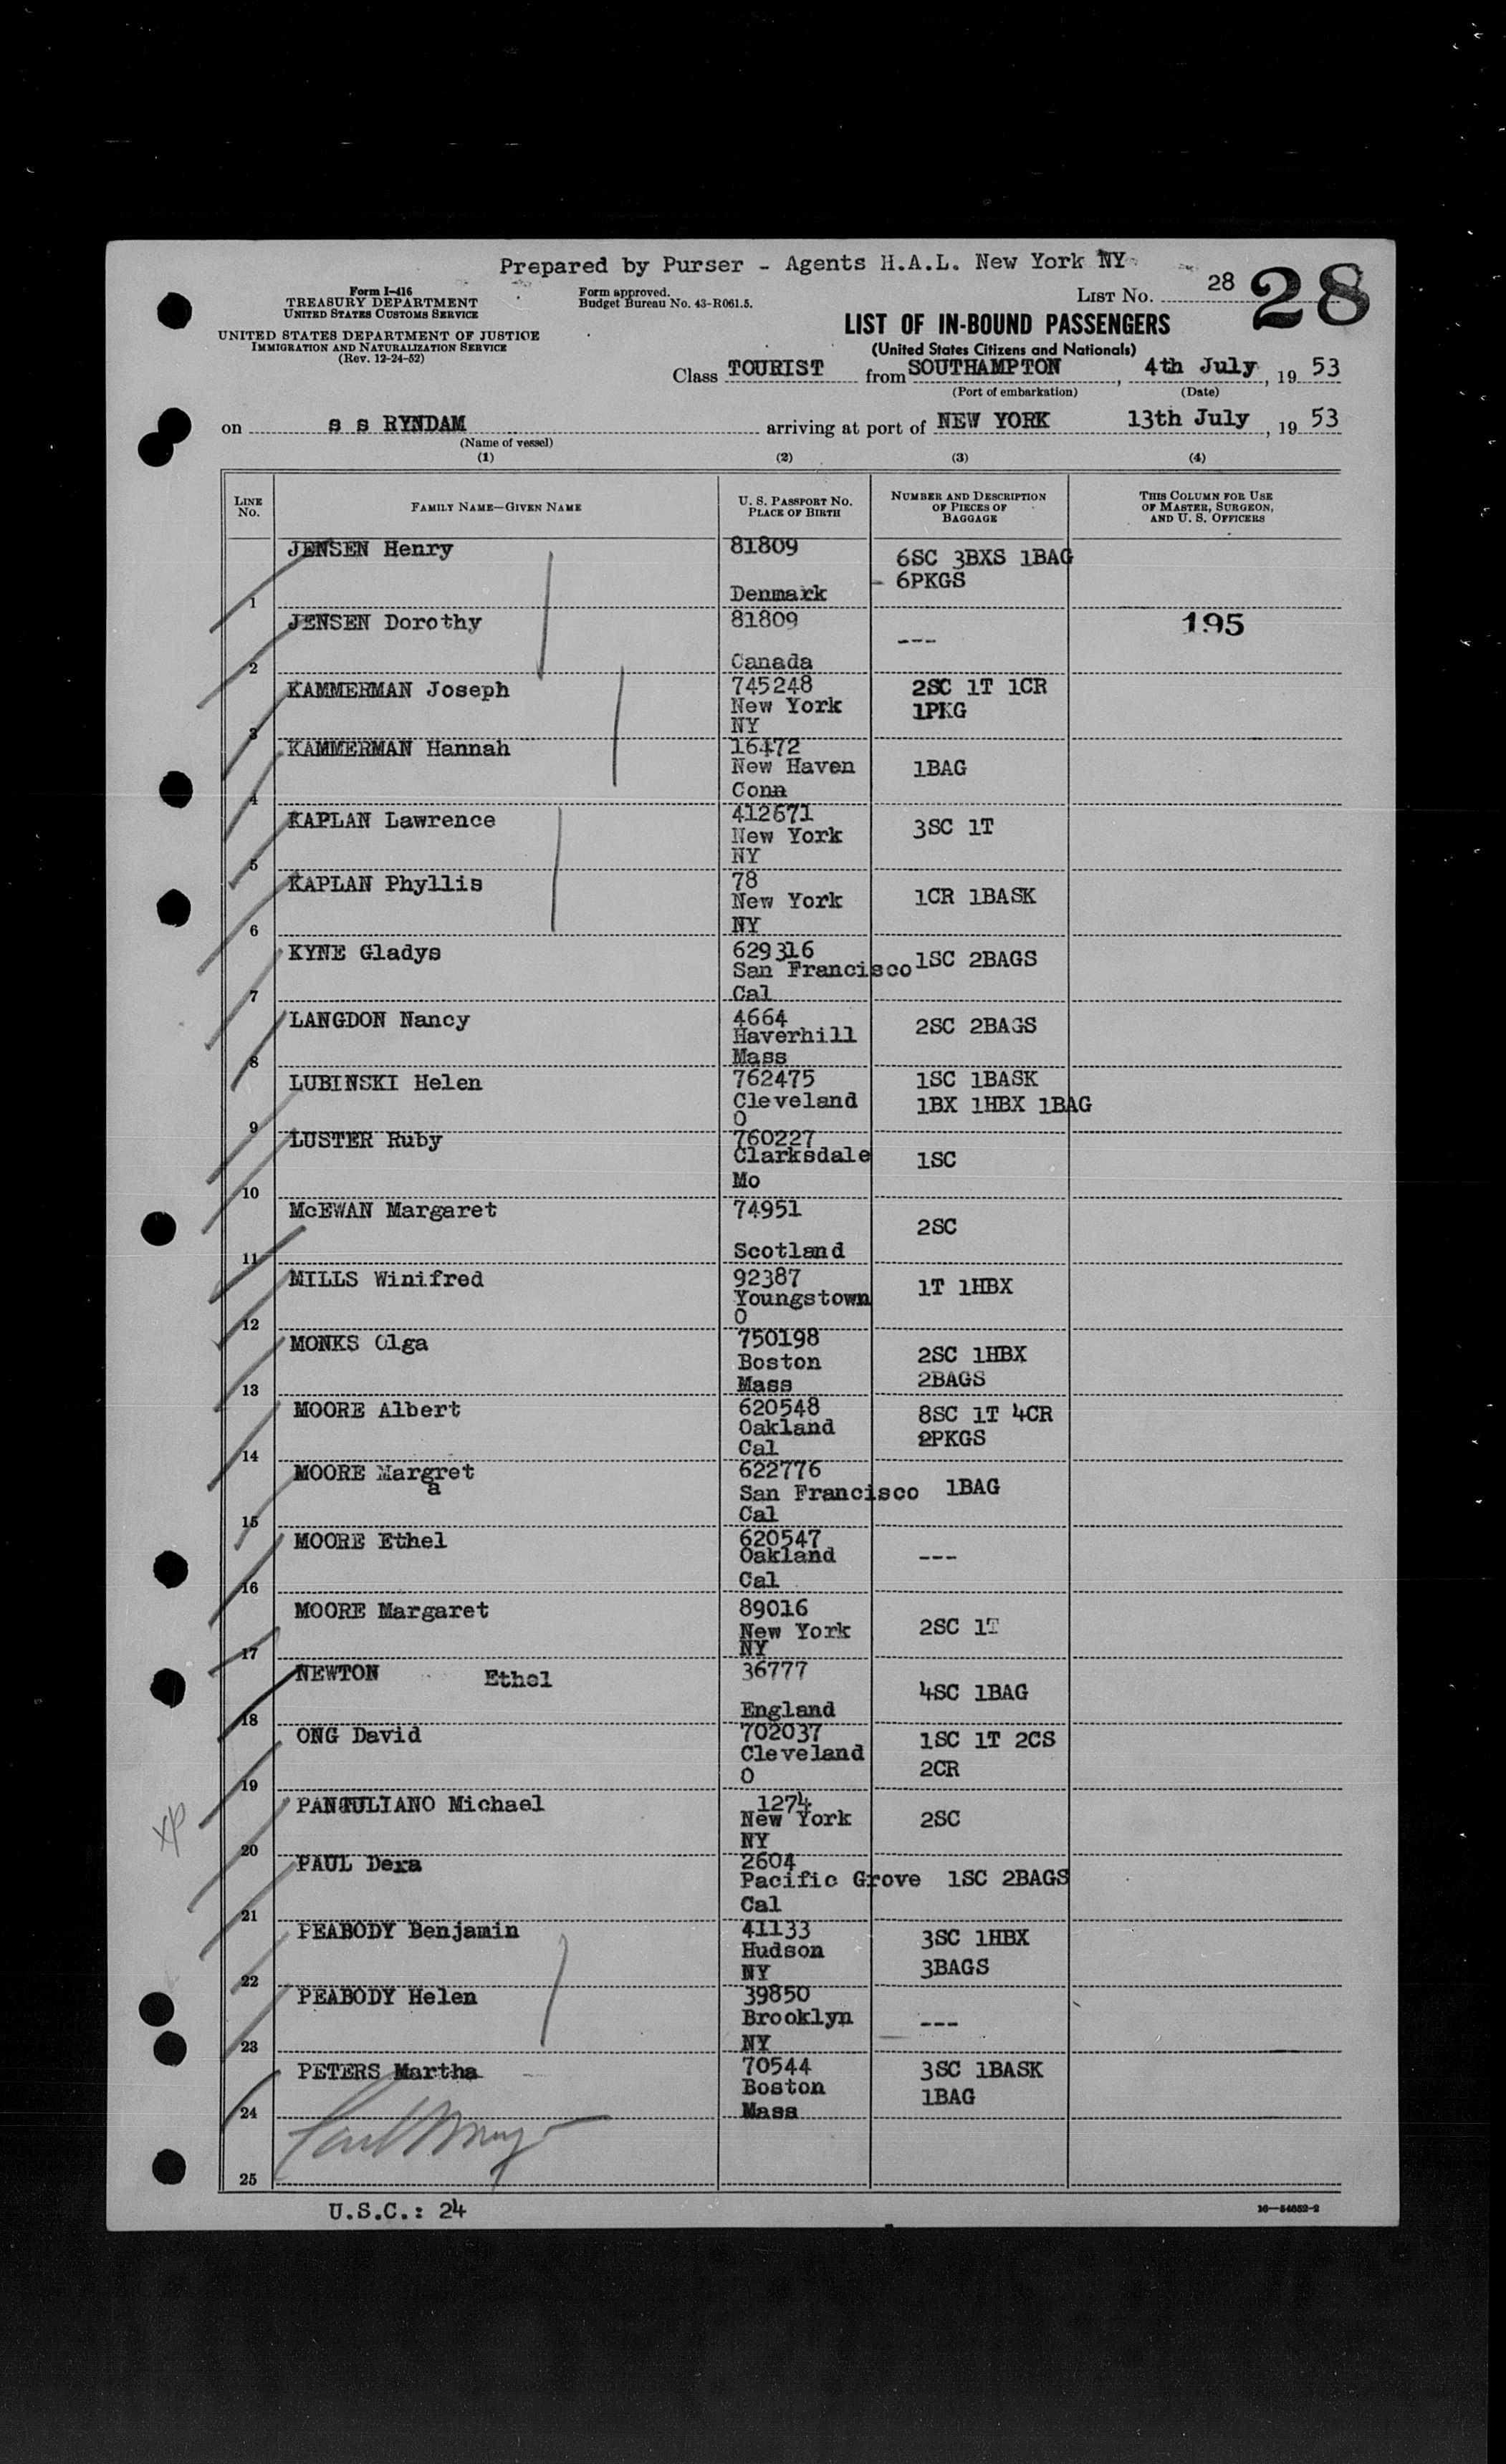 Prepared by Purser - Agents H.A.L. New York NY
Form I-416
TREASURY DEPARTMENT
UNITED STATES CUSTOMS SERVICE
UNITED STATES DEPARTMENT OF JUSTICE
IMMIGRATION AND NATURALIZATION SERVICE
(Rev. 12-24-52)
Form approved.
Budget Bureau No. 43-R061.5.
LIST NO. 28
28
LIST OF IN-BOUND PASSENGERS
(United States Citizens and Nationals)
Class TOURIST from SOUTHAMPTON, 4th July, 19 53
(Port of embarkation) (Date)
on s s RYNDAM arriving at port of NEW YORK 13th July, 19 53
(Name of vessel)
(1) (2) (3) (4)
LINE NO.
FAMILY NAME—GIVEN NAME
U. S. PASSPORT NO.
PLACE OF BIRTH
NUMBER AND DESCRIPTION
OF PIECES OF
BAGGAGE
THIS COLUMN FOR USE
OF MASTER, SURGEON,
AND U. S. OFFICERS
JENSEN Henry 81809 6SC 3BXS 1BAG
6PKGS
1 Denmark
JENSEN Dorothy 81809 --- 195
2 Canada
KAMMERMAN Joseph 745248 2SC 1T 1CR
New York 1PKG
3 NY
KAMMERMAN Hannah 16472
New Haven 1BAG
4 Conn
KAPLAN Lawrence 412671
New York 3SC 1T
5 NY
KAPLAN Phyllis 78
New York 1CR 1BASK
6 NY
KYNE Gladys 629316
San Francisco 1SC 2BAGS
7 Cal
LANGDON Nancy 4664
Haverhill 2SC 2BAGS
8 Mass
LUBINSKI Helen 762475 1SC 1BASK
Cleveland 1BX 1HBX 1BAG
9 O
LUSTER Ruby 760227
Clarksdale 1SC
10 Mo
McEWAN Margaret 74951
2SC
11 Scotland
MILLS Winifred 92387
Youngstown 1T 1HBX
12 O
MONKS Olga 750198
Boston 2SC 1HBX
13 Mass 2BAGS
MOORE Albert 620548 8SC 1T 4CR
Oakland 2PKGS
14 Cal
MOORE Margret 622776
a
San Francisco 1BAG
15 Cal
MOORE Ethel 620547
Oakland ---
16 Cal
MOORE Margaret 89016
New York 2SC 1T
17 NY
NEWTON Ethel 36777
4SC 1BAG
18 England
ONG David 702037 1SC 1T 2CS
Cleveland 2CR
19 O
PANTULIANO Michael 1274
New York 2SC
20 NY
XP
PAUL Dera 2604
Pacific Grove 1SC 2BAGS
21 Cal
PEABODY Benjamin 41133 3SC 1HBX
Hudson 3BAGS
22 NY
PEABODY Helen 39850
Brooklyn ---
23 NY
PETERS Martha 70544 3SC 1BASK
Boston 1BAG
24 Mass
25
U.S.C.: 24
16—54652-2